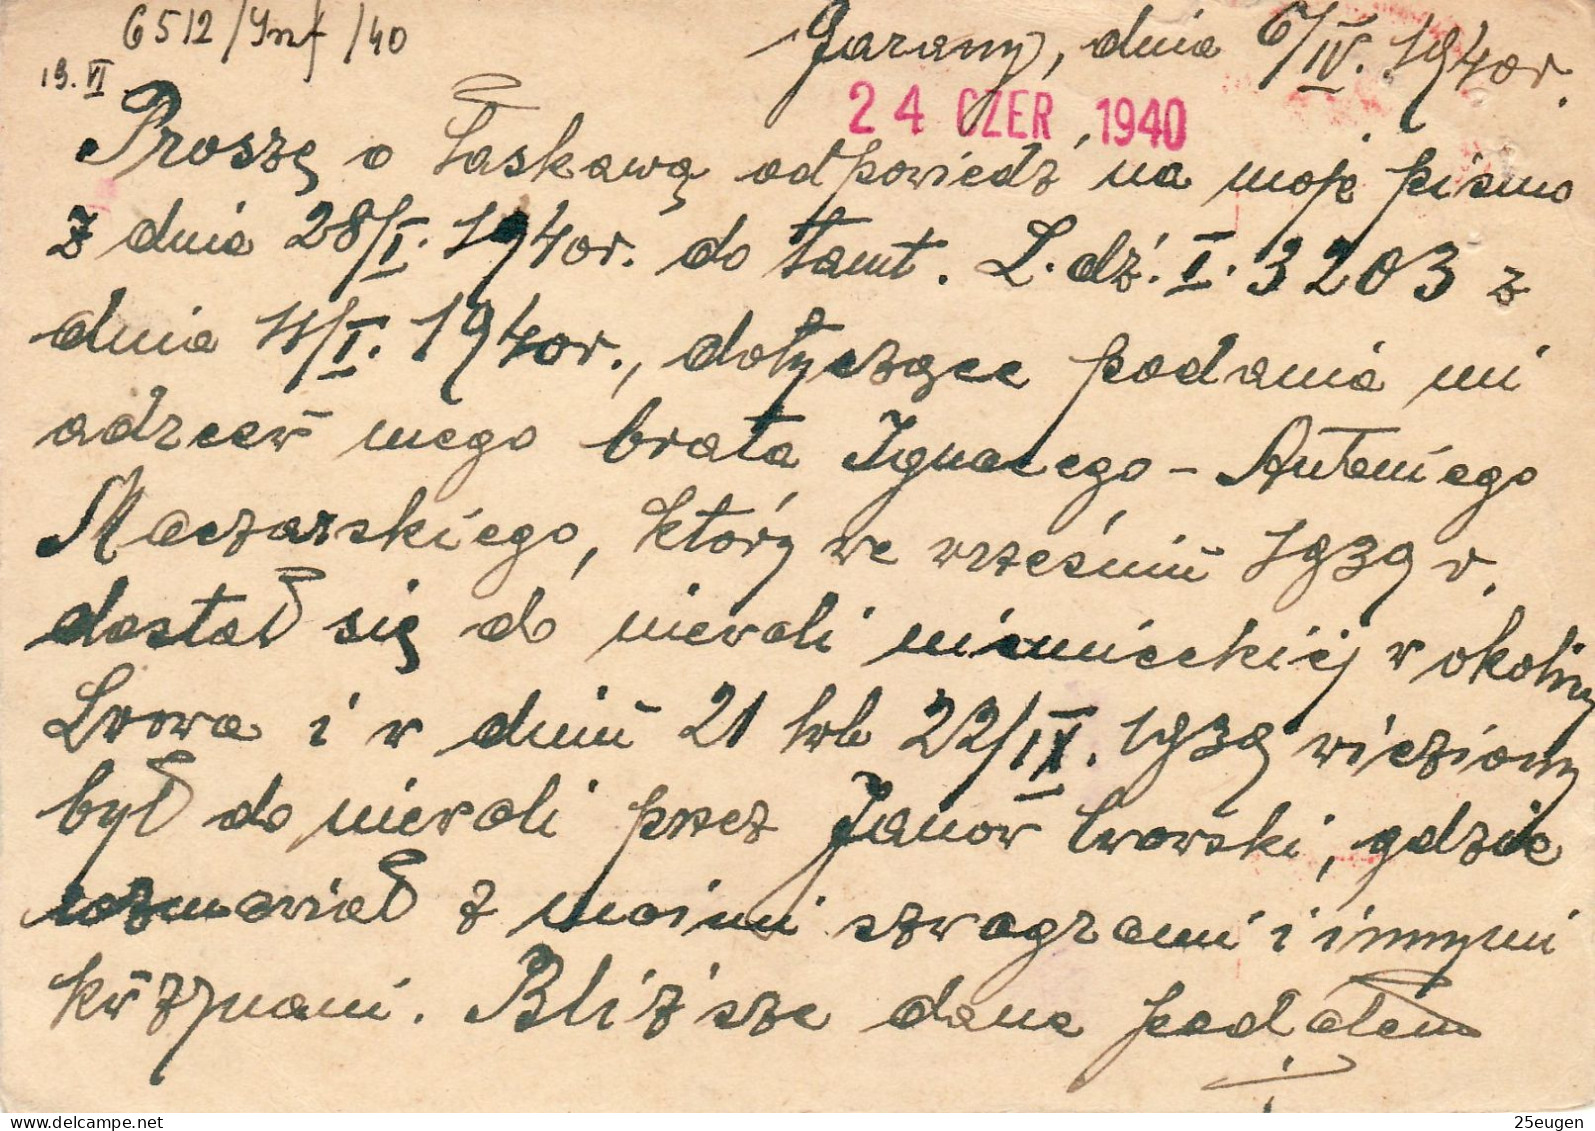 6512/Inf/40
Garany, dnia 6/IV. 1940r.
19. VI
24 CZER 1940
Proszę o łaskawą odpowiedź na moje pismo
z dnia 28/I. 1940r. do tamt. L. dź. I. 3203 z
dnia 11/I. 1940r., dotyczące podania mi
adresu mego brata Ignacego - Antoniego
Maczarskiego, który we wrześniu 1939 r.
dostał się do niewoli niemieckiej w okolicy
Lwowa i w dniu 21 lub 22/IX. 1939 wieziony
był do niewoli przez Janów lwowski, gdzie
rozmawiał z moimi szwagrami i innymi
kuzynami. Bliższe dane podałem
25eugen